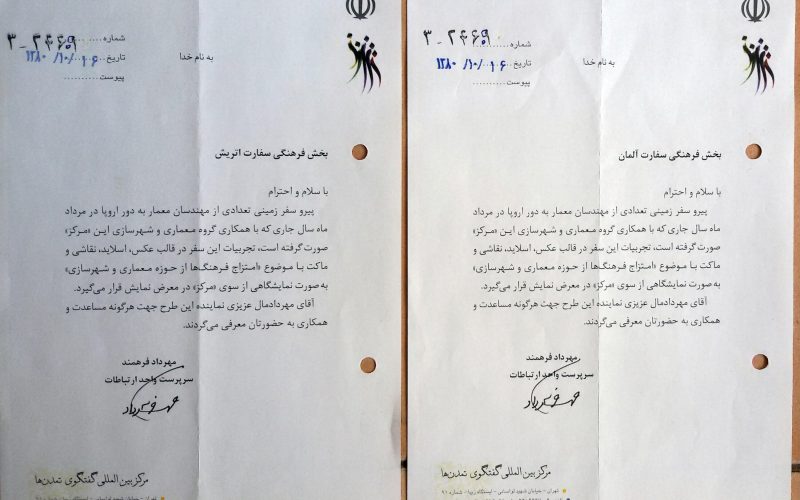 شماره ۳-۲۴۶۹
تاریخ ۱۳۸۰/۱۰/۱۶
پیوست
به نام خدا
بخش فرهنگی سفارت اتریش
با سلام و احترام
پیرو سفر زمینی تعدادی از مهندسان معمار به دور اروپا در مرداد
ماه سال جاری که با همکاری گروه معماری و شهرسازی این «مرکز»
صورت گرفته است، تجربیات این سفر در قالب عکس، اسلاید، نقاشی و
ماکت با موضوع «امتزاج فرهنگ‌ها از حوزه معماری و شهرسازی»
به صورت نمایشگاهی از سوی «مرکز» در معرض نمایش قرار می‌گیرد.
آقای مهردادمال عزیزی نماینده این طرح جهت هرگونه مساعدت و
همکاری به حضورتان معرفی می‌گردند.
مهرداد فرهمند
سرپرست واحد ارتباطات
مرکز بین المللی گفتگوی تمدن‌ها
تهران - خیابان شهید لواسانی -
شماره ۳-۲۴۶۹
تاریخ ۱۳۸۰/۱۰/۱۶
پیوست
به نام خدا
بخش فرهنگی سفارت آلمان
با سلام و احترام
پیرو سفر زمینی تعدادی از مهندسان معمار به دور اروپا در مرداد
ماه سال جاری که با همکاری گروه معماری و شهرسازی این «مرکز»
صورت گرفته است، تجربیات این سفر در قالب عکس، اسلاید، نقاشی و
ماکت با موضوع «امتزاج فرهنگ‌ها از حوزه معماری و شهرسازی»
به صورت نمایشگاهی از سوی «مرکز» در معرض نمایش قرار می‌گیرد.
آقای مهردادمال عزیزی نماینده این طرح جهت هرگونه مساعدت و
همکاری به حضورتان معرفی می‌گردند.
مهرداد فرهمند
سرپرست واحد ارتباطات
مرکز بین المللی گفتگوی تمدن‌ها
تهران - خیابان شهید لواسانی -